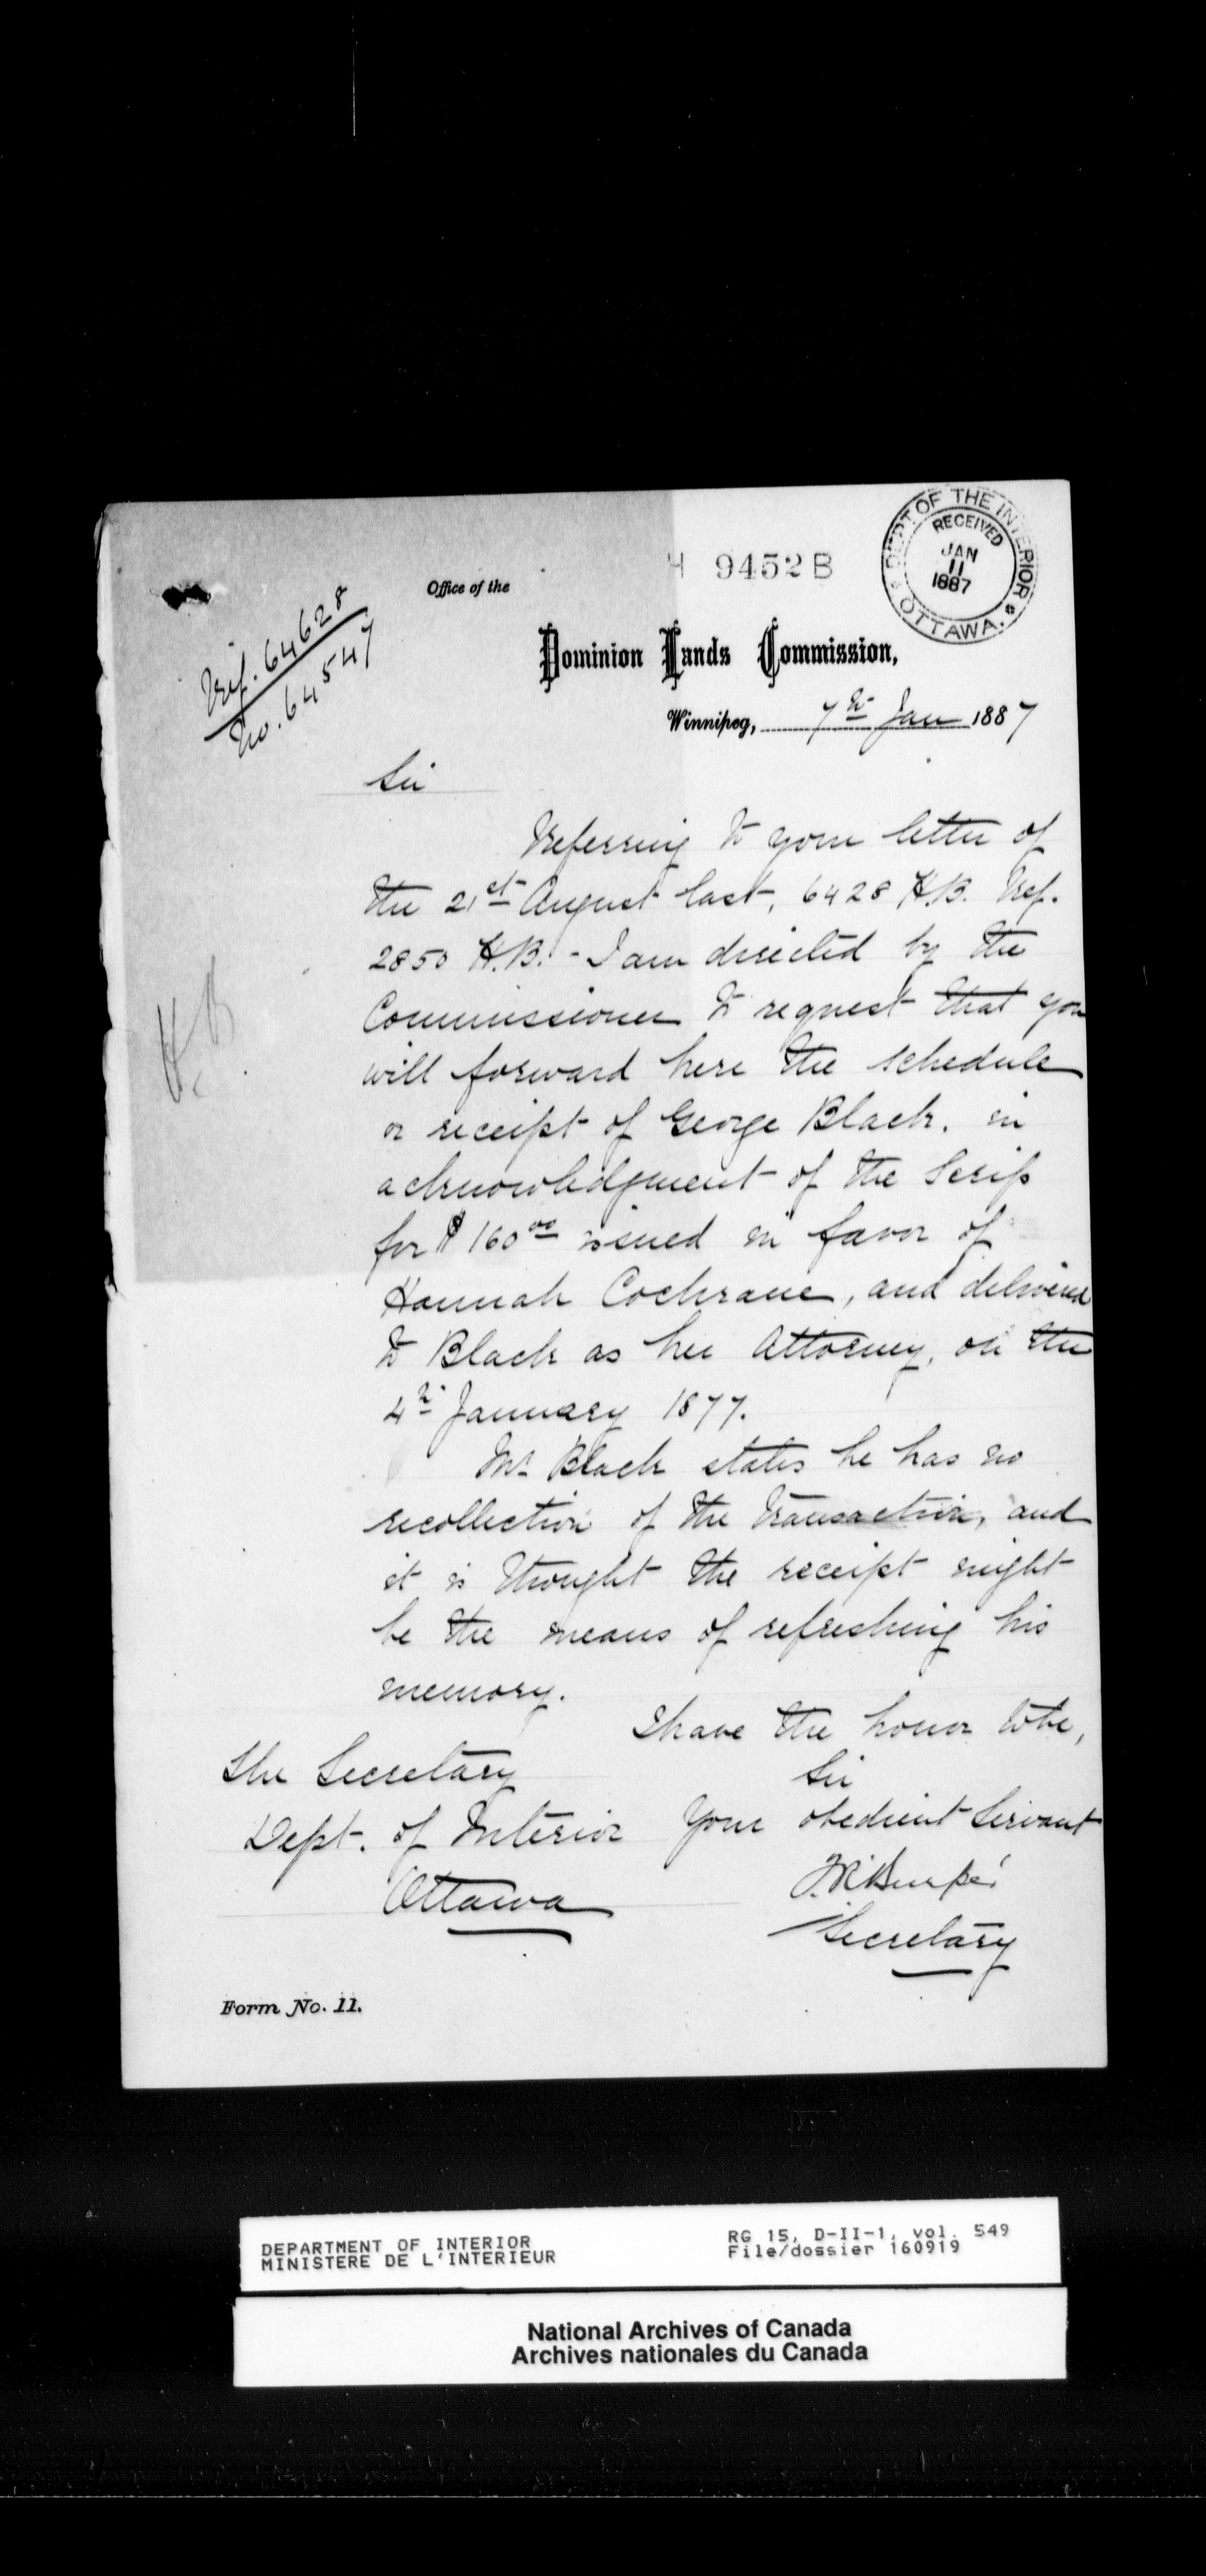 H 9452 B
DEPT OF THE INTERIOR
RECEIVED
JAN
11
1887
OTTAWA.
Office of the
Dominion Lands Commission,
Ref. 64628
No. 64547
Winnipeg, 7th Jan 1887
Sir
Referring to your letter of
the 21st August last, 6428 H.B. Ref.
2850 H.B. - I am directed by the
Commissioner to request that you
will forward here the schedule
H B
or receipt of George Black, in
acknowledgment of the Scrip
for $160.00 issued in favor of
Hannah Cochrane, and delivered
to Black as her Attorney, on the
4th January 1877.
Mr. Black states he has no
recollection of the transaction, and
it is thought the receipt might
be the means of refreshing his
memory.
I have the honor to be,
Sir
Your obedient Servant
Secretary
The Secretary
Dept. of Interior
Ottawa
Form No. 11.
DEPARTMENT OF INTERIOR
MINISTERE DE L'INTERIEUR
RG 15, D-II-1, vol. 549
File/dossier 160919
National Archives of Canada
Archives nationales du Canada